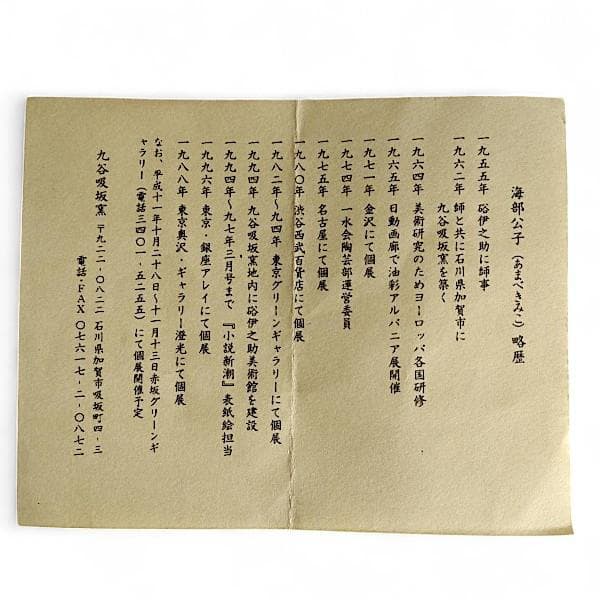 海部公子（あまべきみこ）略歴
一九五五年 硲伊之助に師事
一九六二年 師と共に石川県加賀市に
九谷吸坂窯を築く
一九六四年 美術研究のためヨーロッパ各国研修
一九六五年 日動画廊で油彩アルバニア展開催
一九七一年 金沢にて個展
一九七四年 一水会陶芸部運営委員
一九七五年 名古屋にて個展
一九八〇年 渋谷西武百貨店にて個展
一九八二年〜九四年 東京グリーンギャラリーにて個展
一九九四年 九谷吸坂窯地内に硲伊之助美術館を建設
一九九四年〜九七年三月号まで 『小説新潮』表紙絵担当
一九九六年 東京・銀座アレイにて個展
一九八八年 東京奥沢・ギャラリー澄光にて個展
なお、平成十一年十月二十八日〜十一月十三日赤坂グリーンギ
ャラリー（電話三四〇一‐五二五五）にて個展開催予定
九谷吸坂窯 〒九二二‐〇八二二 石川県加賀市吸坂町四‐三
電話・FAX 〇七六一七‐二‐〇八七二